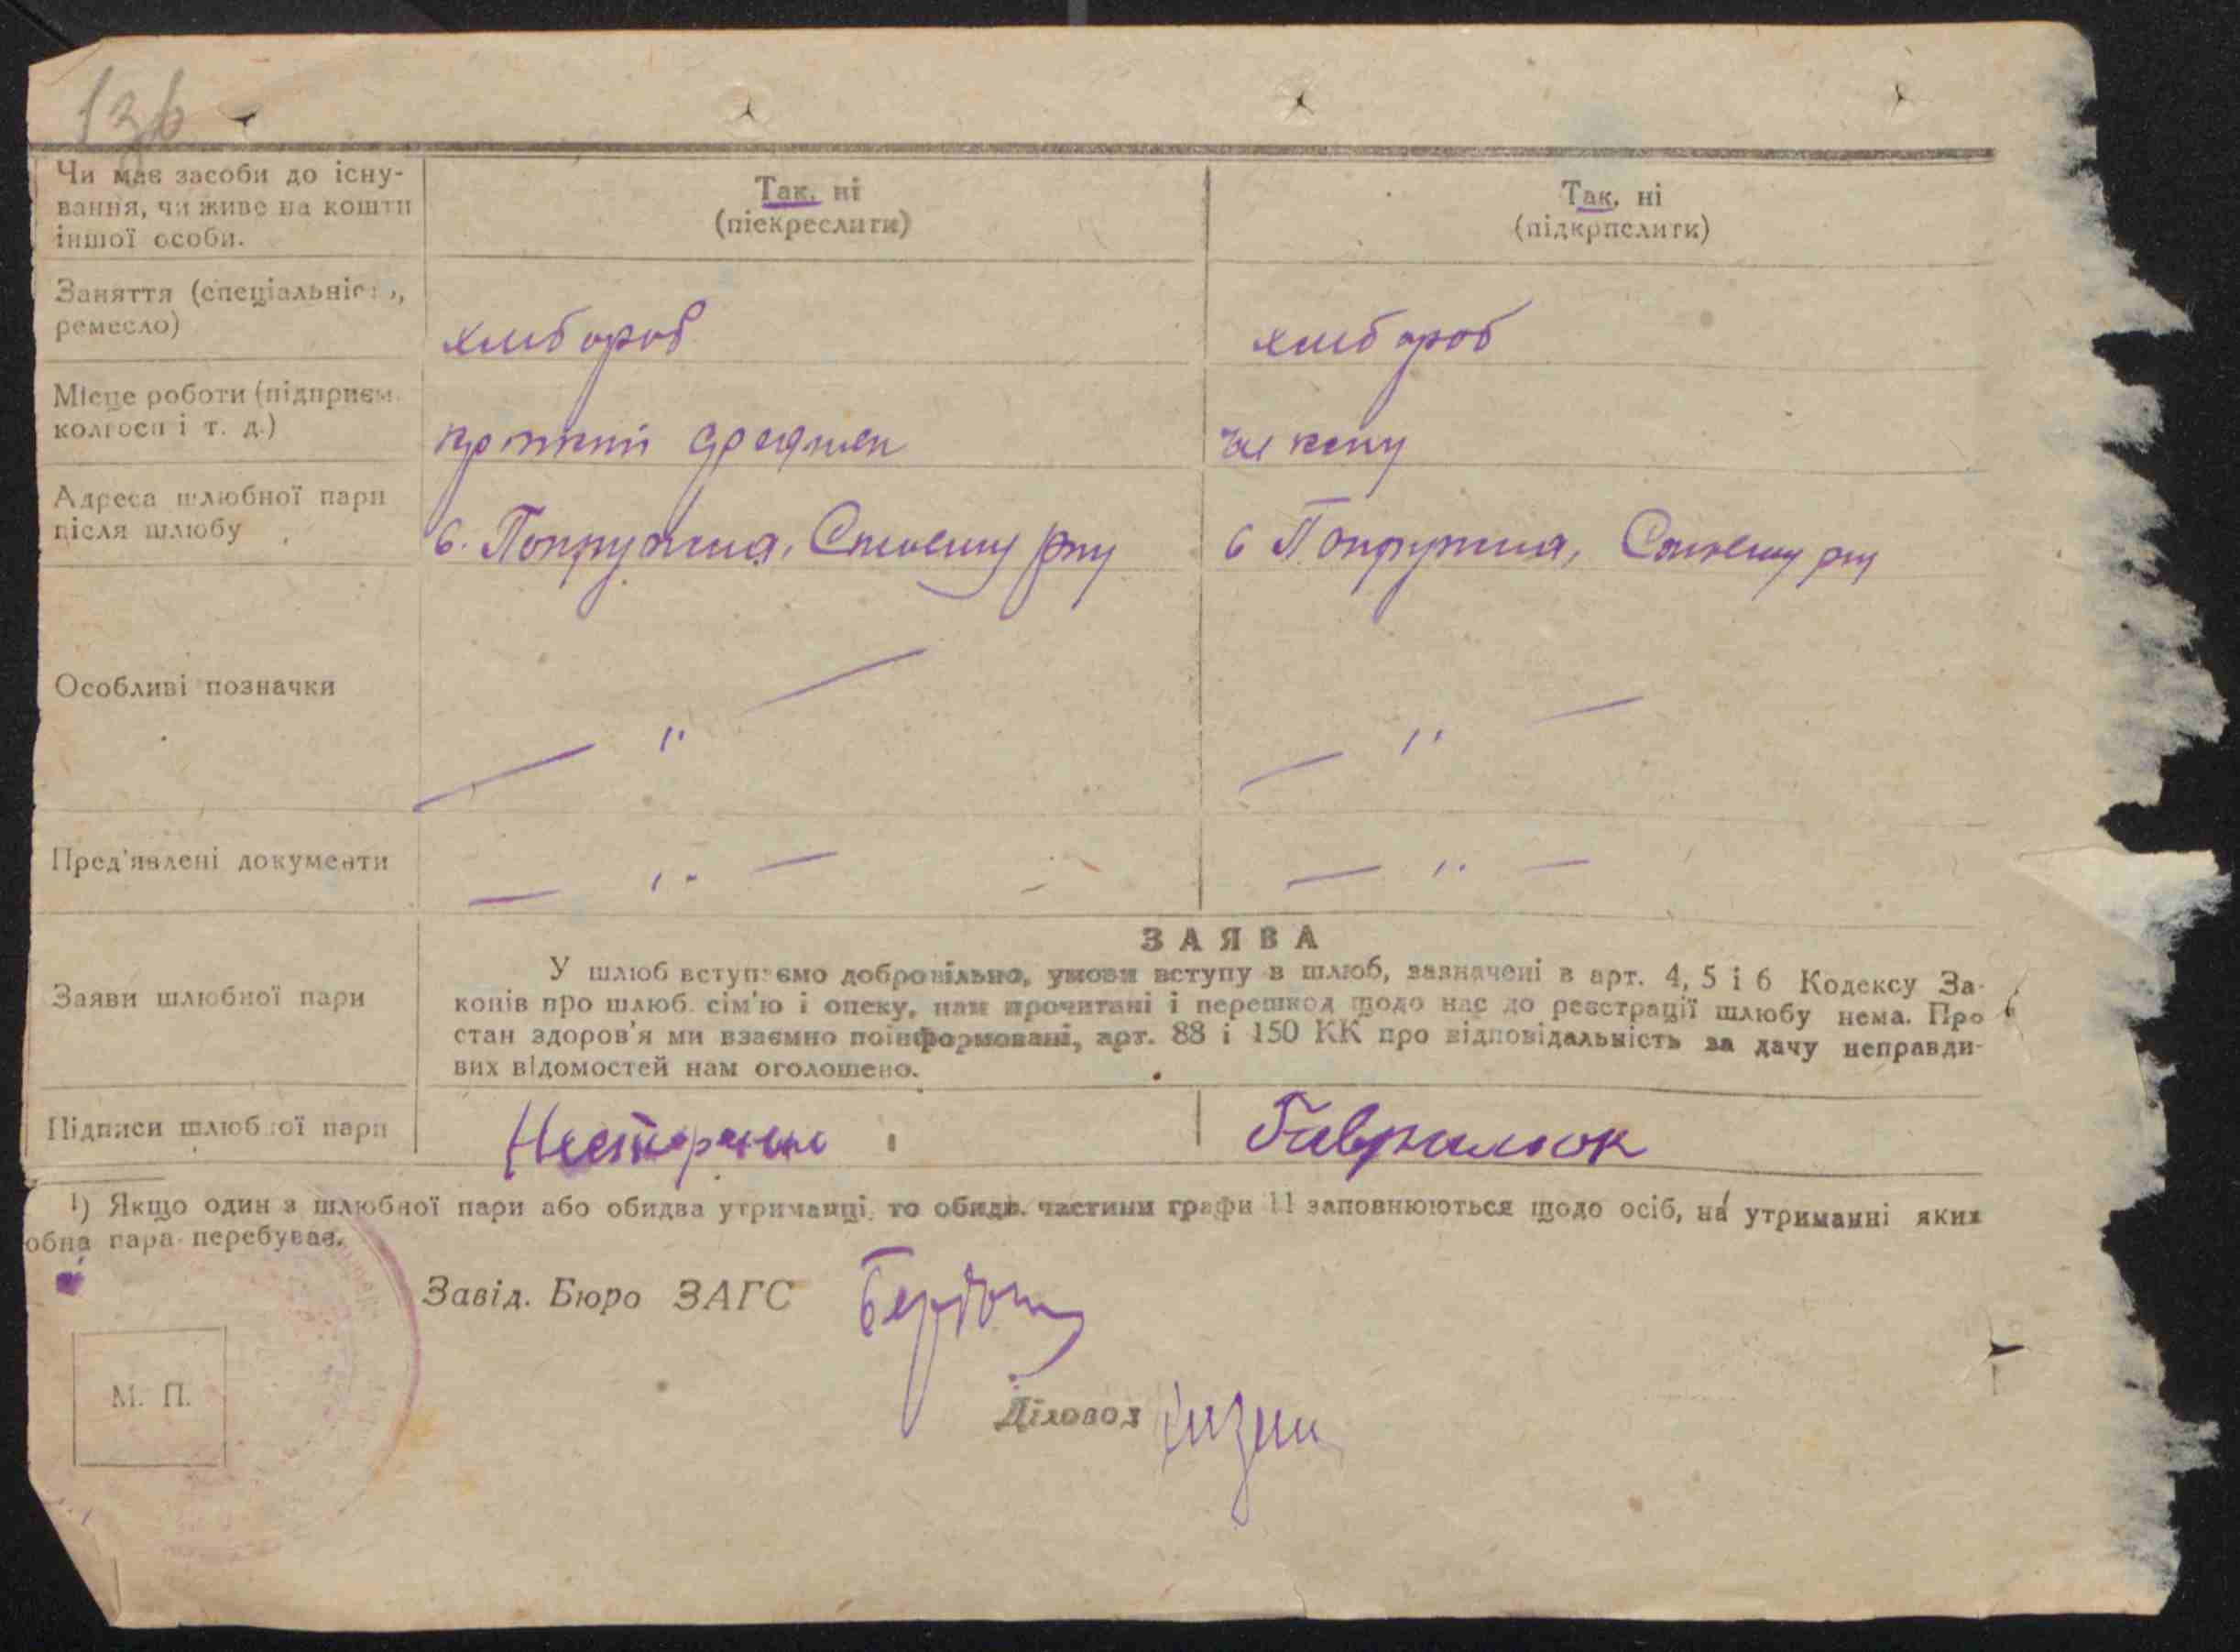 13б
Чи має засоби до існу-
вання, чи живе на кошти
іншої особи.
Так, ні
(піскреслити)
Так, ні
(підкрпслити)
Заняття (спеціальність,
ремесло)
хлибороб
хлибороб
Місце роботи (підприєм.
колгосп і т. д.)
Адреса шлюбної пари
після шлюбу
с. Попружна,
с Попружна,
Особливі позначки
— " —
— " —
Пред'явлені документи
— " —
— " —
Заяви шлюбної пари
ЗАЯВА
У шлюб вступаємо добровільно, умови вступу в шлюб, зазначені в арт. 4, 5 і 6 Кодексу За-
конів про шлюб. сім'ю і опеку, нам прочитані і перешкод щодо нас до реєстрації шлюбу нема. Про
стан здоров'я ми взаємно поінформовані, арт. 88 і 150 КК про відповідальність за дачу неправди-
вих відомостей нам оголошено.
Підписи шлюбної пари
Нестеренко
Гаврилюк
¹) Якщо один з шлюбної пари або обидва утриманці, то обидві частини графи 11 заповнюються щодо осіб, на утриманні яких
обна пара перебуває.
Завід. Бюро ЗАГС
М. П.
Діловод